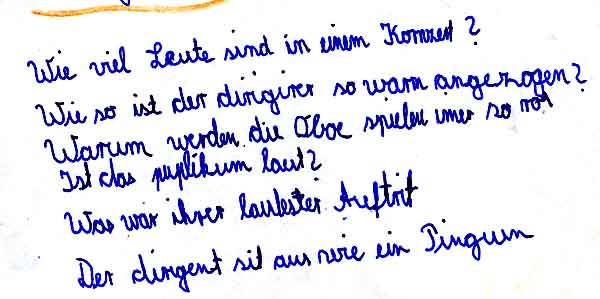 Wie viel Leute sind in einem Konzert?
Wie so ist der dirigirer so warm angezogen?
Warum werden die Oboe spieler imer so rot
Ist das puplikum laut?
Was war ihrer lautester Auftrit
Der dirigent sit aus wie ein Pinguin